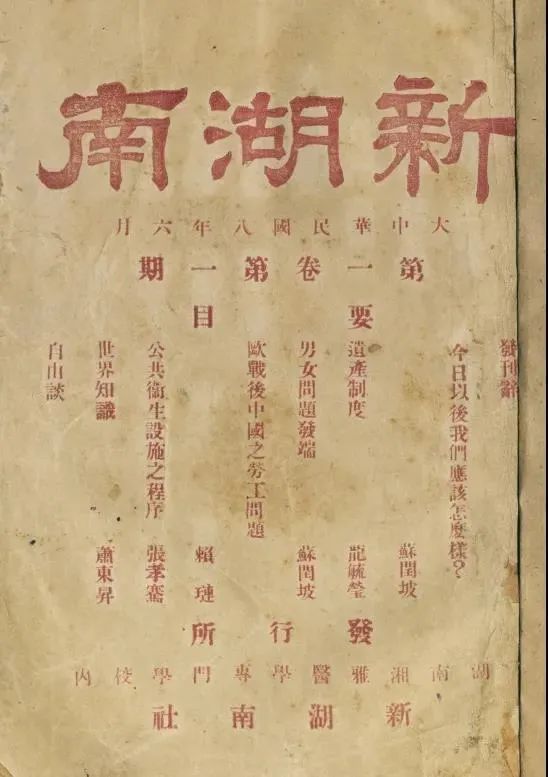 新湖南
大中華民國八年六月
第一卷第一期
要目
發刊辭
今日以後我們應該怎麼樣？
蘇閏坡
遺產制度 龍毓瑩
男女問題發端 蘇閏坡
歐戰後中國之勞工問題
賴璉
公共衞生設施之程序 張孝騫
世界知識 蕭東昇
自由談
發行所
湖南湘雅醫學專門學校內
新湖南社